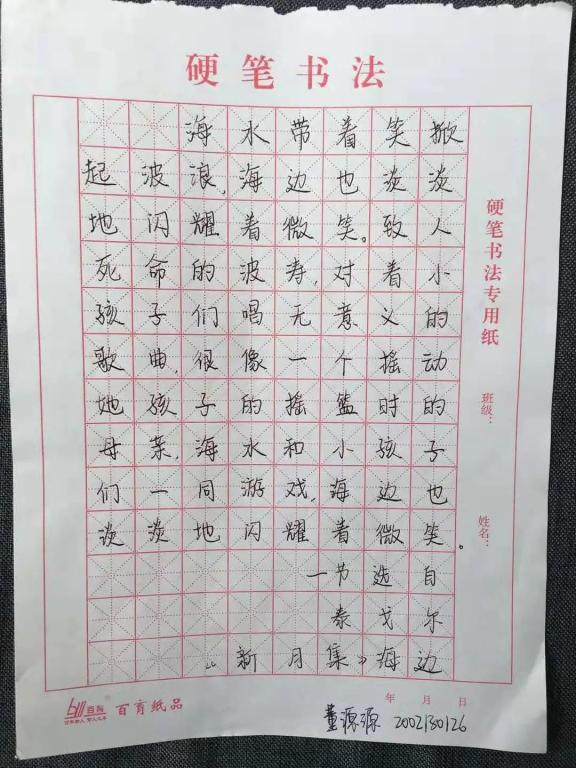 硬笔书法
海水带着笑掀
起波浪,海边也淡淡
地闪耀着微笑。致人
死命的波寿,对着小
孩子们唱无意义的
歌曲,很像一个摇动
她孩子的摇篮时的
母亲,海水和小孩子
们一同游戏,海边也
淡淡地闪耀着微笑。
—节选自
泰戈尔
《新月集》海边
硬笔书法专用纸
班级:
姓名:
百育
百育纸品
年 月 日
董源源 2002130126